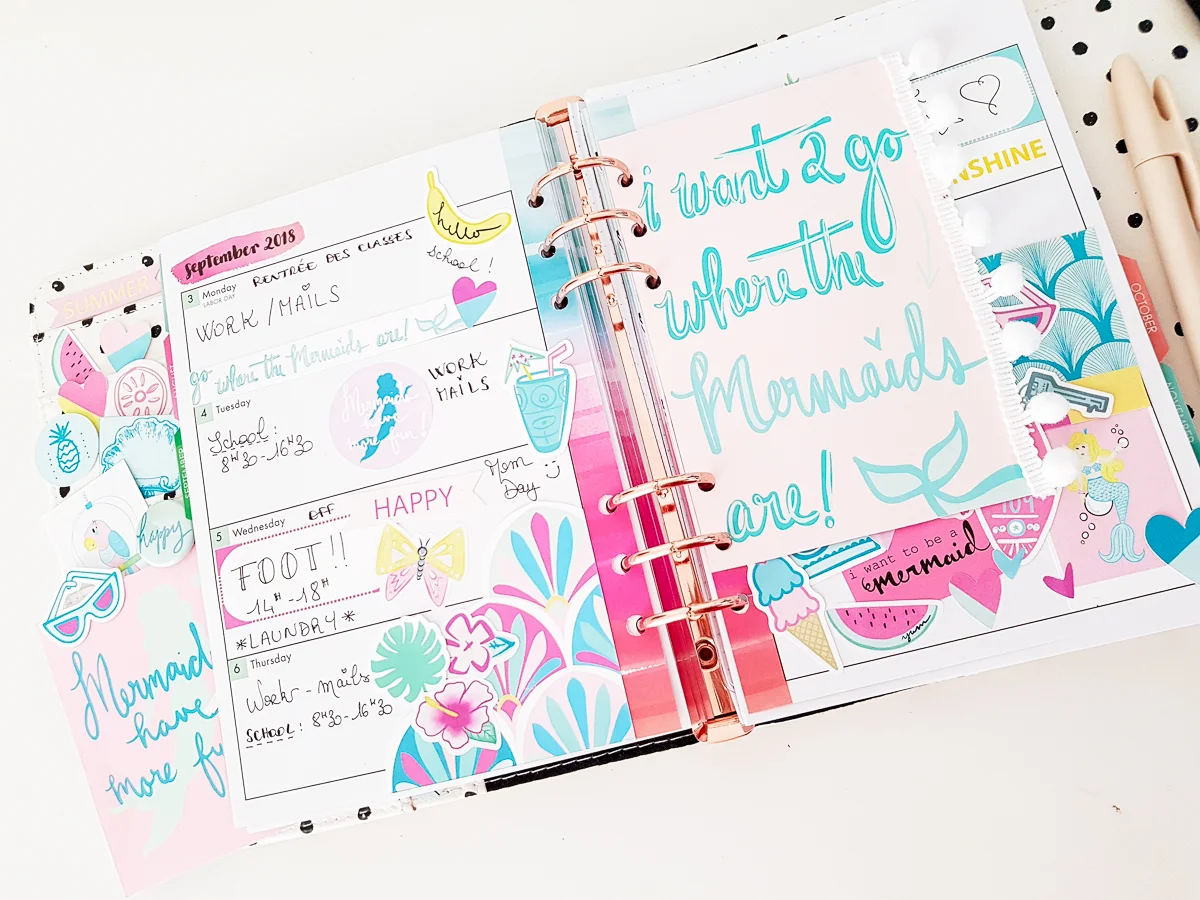 SUMMER
happy
Mermaid
have
more fu
September 2018
hello
school !
3 Monday
LABOR DAY
RENTRÉE DES CLASSES
WORK / MAILS
go where the Mermaids are!
4 Tuesday
School :
8H30-16H30
Mermaids
have
more fun!
WORK
MAILS
5 Wednesday
OFF
HAPPY
Mom
Day
FOOT!!
14H-18H
*LAUNDRY*
6 Thursday
Work - mails
SCHOOL : 8H30-16H30
i want 2 go
where the
Mermaids
are!
NSHINE
OCTOBER
i want to be a
mermaid
yum